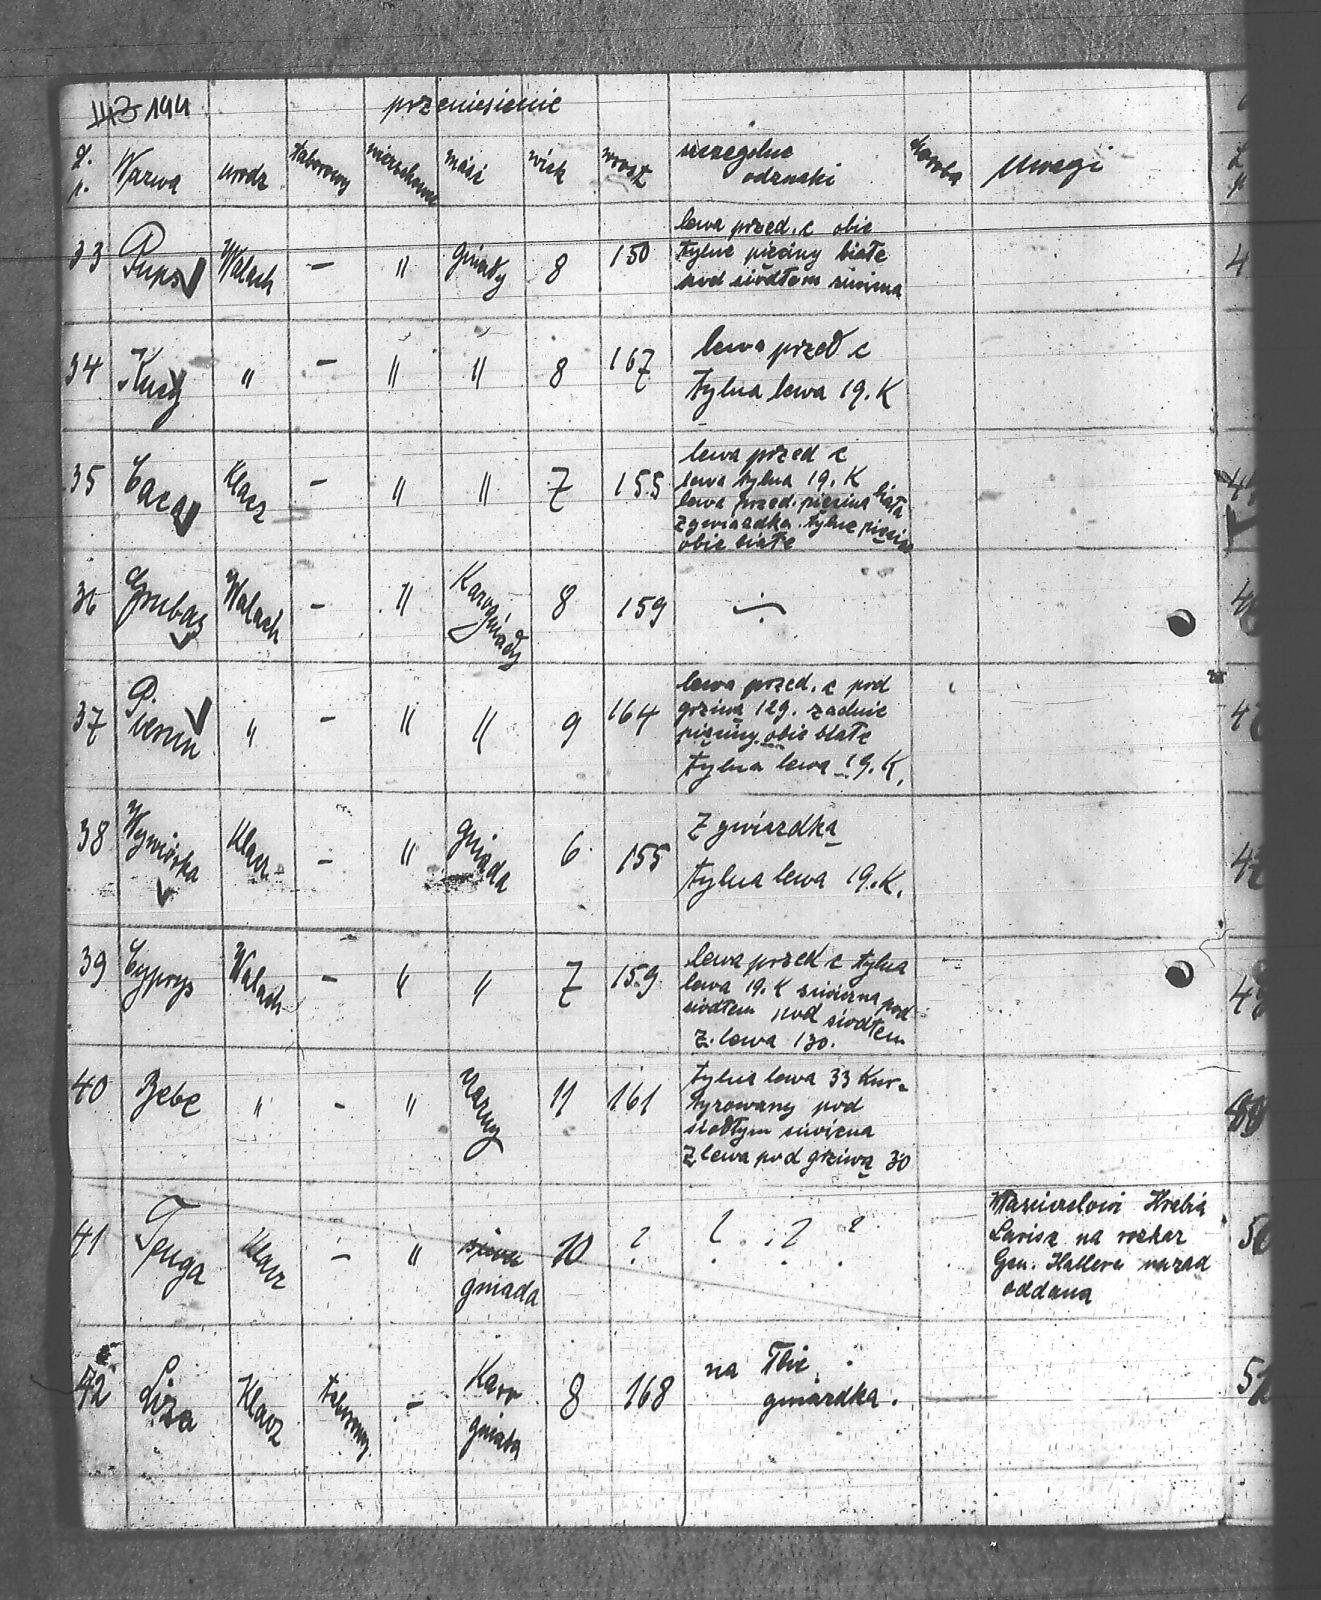 194 przeniesienie
L. p. Nazwa urodz taborowy wierzchowe maść wiek wzost szczegolne odznaki choroba Uwagi
33 Pups Walach — " gniady 8 150 lewa przed. c obie
tylne pięciny białe
pod siodłem siwizna
34 Kucy " — " " 8 167 lewa przed c
tylna lewa 19. K
35 Caca Klacz — " " 7 155 lewa przed c
lewa tylna 19. K
lewa przed. pięcina biała
z gwiazdką. tylne pięciny
obie białe
36 Grubas Walach — " Karogniady 8 159 ÷
37 Piorun " — " " 9 164 lewa przed. c pod
grziwą 129. zadnie
pięciny obie białe
tylna lewa 19. K.
38 Wywiórka Klacz — " gniada 6 155 Z gwiazdką
tylna lewa 19. K.
39 Cyprys Walach — " " 7 159 lewa przed c tylna
lewa 19. K siwizna pod
siodłem pod siodłem
Z. lewa 130.
40 Bebe " — " 11 161 tylna lewa 33 Kur-
tyzowany pod
siodłym siwizna
Z lewa pod grziwą 30
41 Tenga Klacz — " siwa gniada 10 ? ? . ? ? Hrabia
Larisz na rozkaz
Gen. Hallera nazad
oddana
42 Liza Klacz taborowy — Karo gniada 8 168 na łbie
gwiazdka.